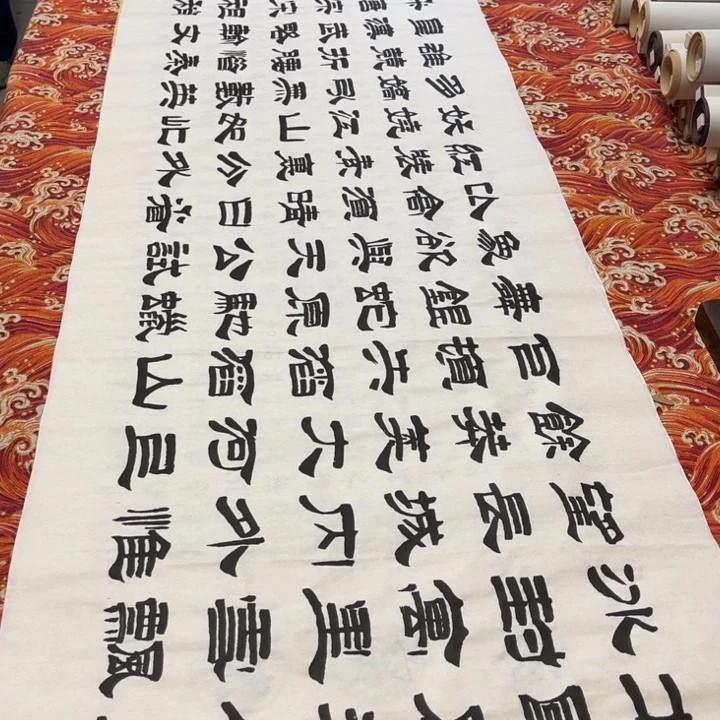 冰封萬里雪飄
望長城內外惟
餘莽莽大河上
下頓失滔滔山
舞銀蛇原馳蠟
象欲與天公試
比高須晴日看
紅裝素裹分外
妖嬈江山如此
多嬌引無數英
雄競折腰惜秦
皇漢武略輸文